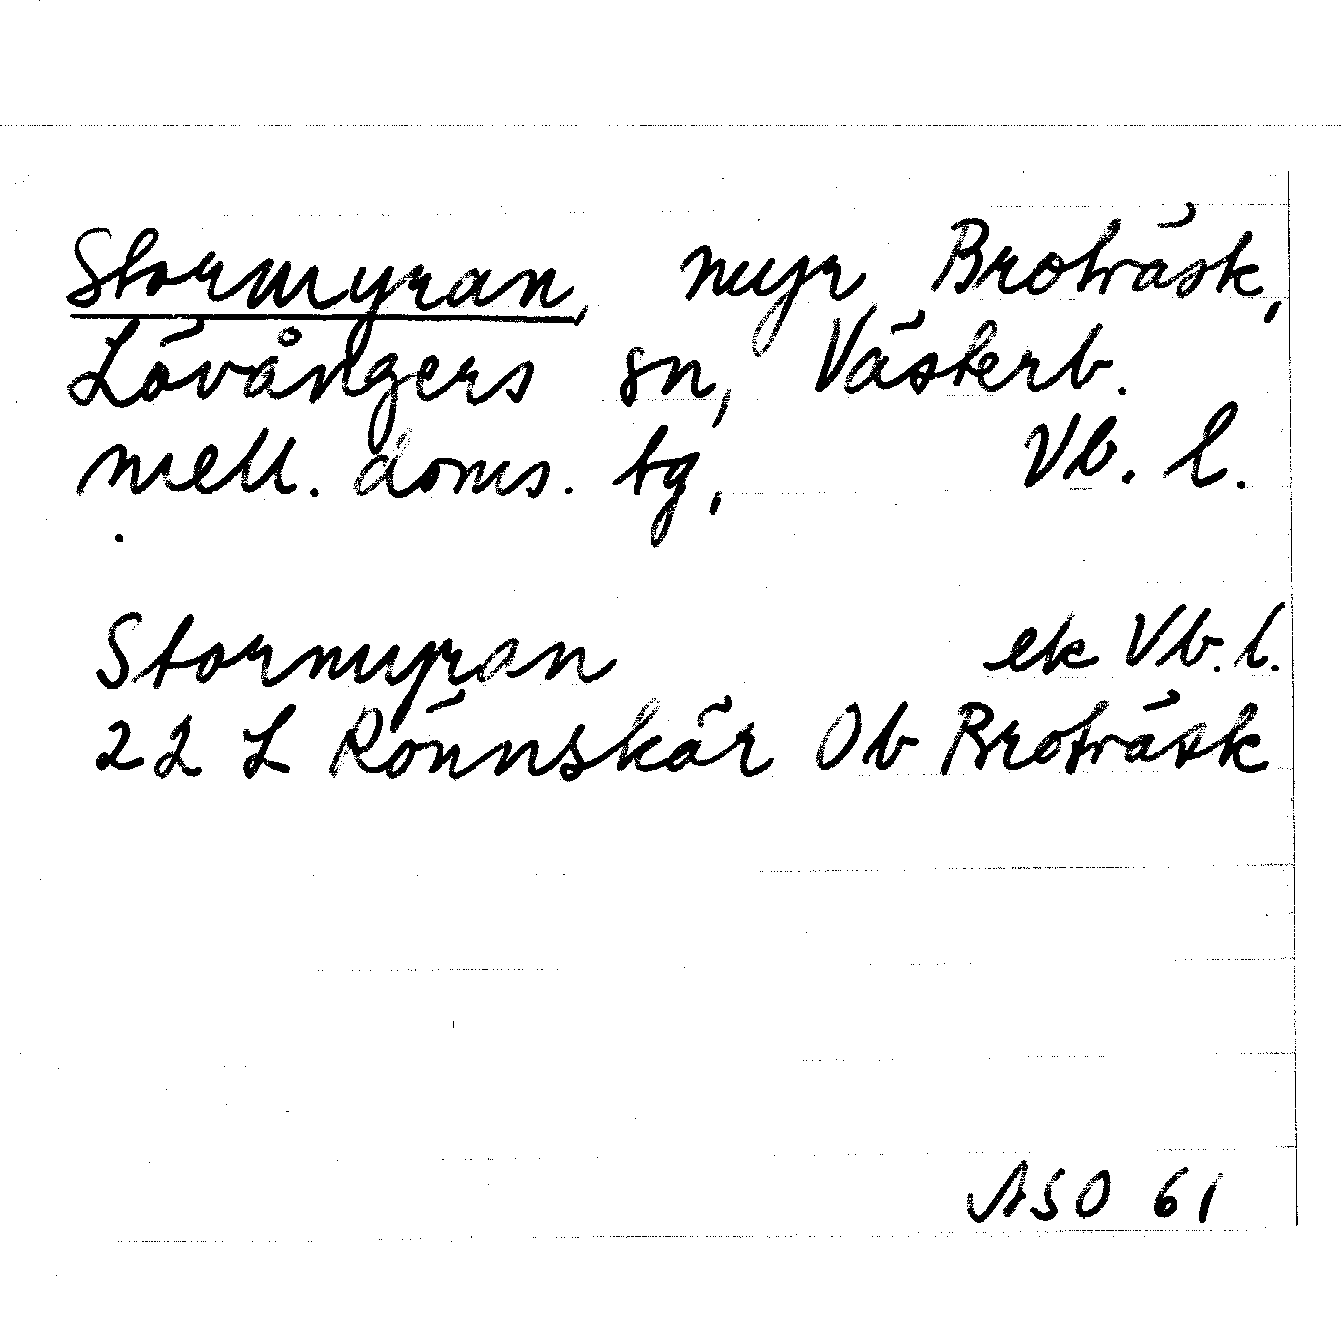 Stormyran, myr Broträsk,
Lövångers sn, Västerb.
mell. doms. tg, Vb. l.
Stormyran ek Vb. l.
22 L Rönnskär Ob Broträsk
ASO 61